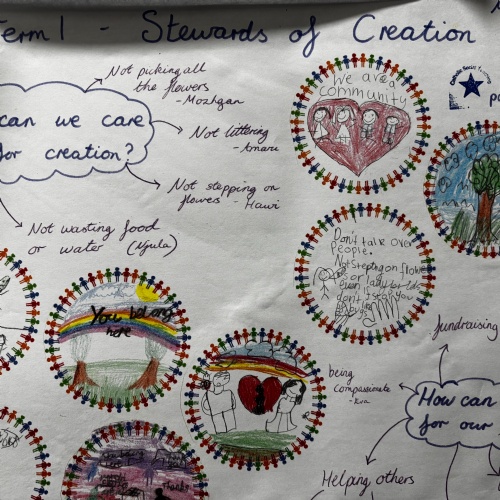 Term 1 - Stewards of Creation
can we care
for creation?
Not picking all
the flowers
- Mozhgan
Not littering
- Amaru
Not stepping on
flowers - Hawi
Not wasting food
or water (Nyula)
We are a
community
Don't talk over
people.
Not steping on flowers
You belong
here
being
compassionate
- Eva
fundraising
How can
for our
Helping others